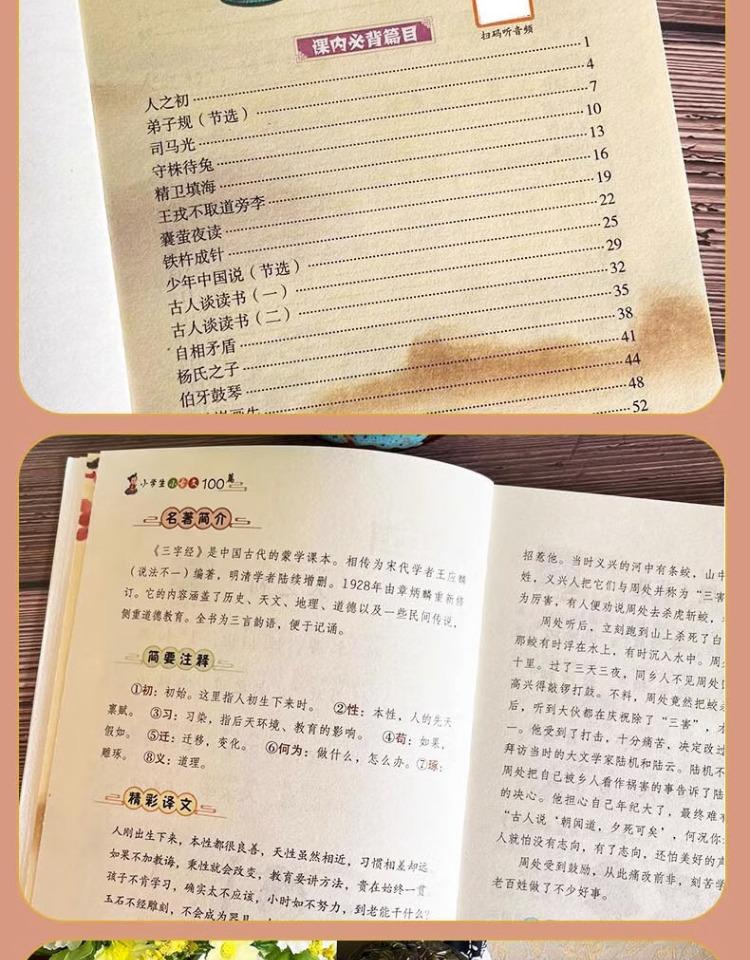 课内必背篇目
扫码听音频
人之初 1
弟子规（节选） 4
司马光 7
守株待兔 10
精卫填海 13
王戎不取道旁李 16
囊萤夜读 19
铁杵成针 22
少年中国说（节选） 25
古人谈读书（一） 29
古人谈读书（二） 32
自相矛盾 35
杨氏之子 38
伯牙鼓琴 41
44
48
52
小学生小古文100篇
名著简介
《三字经》是中国古代的蒙学课本。相传为宋代学者王应麟
（说法不一）编著，明清学者陆续增删。1928年由章炳麟重新修
订。它的内容涵盖了历史、天文、地理、道德以及一些民间传说，
侧重道德教育。全书为三言韵语，便于记诵。
简要注释
①初：初始。这里指人初生下来时。 ②性：本性，人的先天
禀赋。 ③习：习染，指后天环境、教育的影响。 ④苟：如果，
假如。 ⑤迁：迁移，变化。 ⑥何为：做什么，怎么办。⑦琢：
雕琢。 ⑧义：道理。
精彩译文
人刚出生下来，本性都很良善，天性虽然相近，习惯相差却远
如果不加教诲，秉性就会改变，教育要讲方法，贵在始终一贯
孩子不肯学习，确实太不应该，小时如不努力，到老能干什么？
玉石不经雕刻，不会成为器具
招惹他。当时义兴的河中有条蛟，山中
姓，义兴人把它们与周处并称为“三害
为厉害，有人便劝说周处去杀虎斩蛟，
周处听后，立刻跑到山上杀死了白
那蛟有时浮在水上，有时沉入水中。周
十里。过了三天三夜，同乡人不见周处
高兴得敲锣打鼓。不料，周处竟然把蛟
后，听到大伙都在庆祝除了“三害”，才
一。他受到了打击，十分痛苦、决定改过
拜访当时的大文学家陆机和陆云。陆机不
周处把自己被乡人看作祸害的事告诉了陆
的决心。他担心自己年纪大了，最终难有
“古人说‘朝闻道，夕死可矣’，何况你
人就怕没有志向，有了志向，还怕美好的声
周处受到鼓励，从此痛改前非，刻苦学
老百姓做了不少好事。